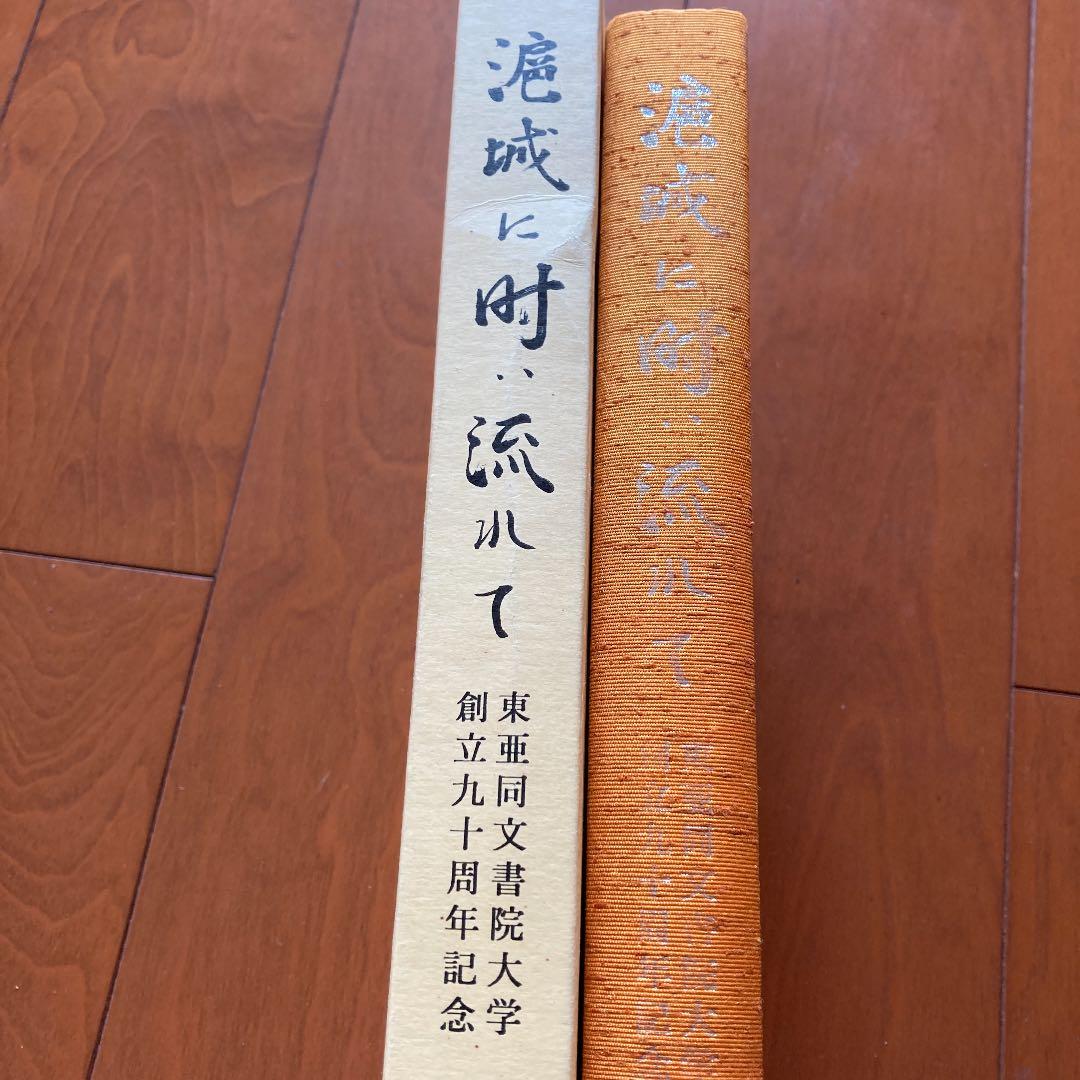 滬城に時は流れて
東亜同文書院大学
創立九十周年記念
滬城に時は流れて
東亜同文書院大学
創立九十周年記念